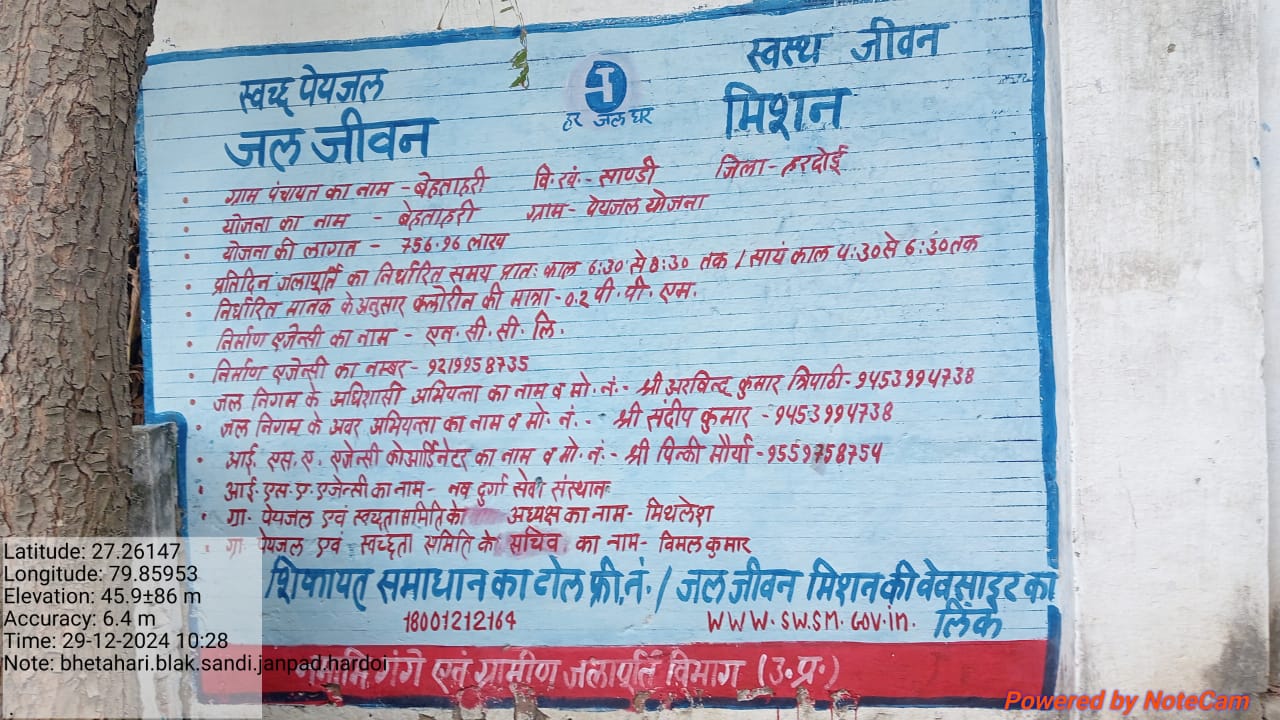 स्वच्छ पेयजल
स्वस्थ जीवन
हर जल घर
जल जीवन मिशन
ग्राम पंचायत का नाम - बेहताहरी वि.खं.- साण्डी जिला- हरदोई
योजना का नाम - बेहताहरी ग्राम- पेयजल योजना
योजना की लागत - 756.96 लाख
प्रतिदिन जलापूर्ति का निर्धारित समय प्रातः काल 6:30 से 8:30 तक / सायं काल 4:30 से 6:30 तक
निर्धारित मानक के अनुसार क्लोरीन की मात्रा - 0.2 पी. पी. एम.
निर्माण एजेन्सी का नाम - एन. सी. सी. लि.
निर्माण एजेन्सी का नम्बर - 9219958735
जल निगम के अधिशासी अभियन्ता का नाम व मो. नं:- श्री अरविन्द कुमार त्रिपाठी- 9453994738
जल निगम के अवर अभियन्ता का नाम व मो. नं. - श्री संदीप कुमार - 9453994738
आई. एस. ए. एजेन्सी कोआर्डिनेटर का नाम व मो. नं:- श्री पिन्की मौर्या - 9559758754
आई. एस. ए. एजेन्सी का नाम - नव दुर्गा सेवा संस्थान
गा. पेयजल एवं स्वच्छता समिति के अध्यक्ष का नाम- मिथलेश
गा. पेयजल एवं स्वच्छता समिति के सचिव का नाम- विमल कुमार
शिकायत समाधान का टोल फ्री.नं. / जल जीवन मिशन की वेबसाइट का लिंक
18001212164 WWW.SWSM.GOV.in.
नमामि गंगे एवं ग्रामीण जलापूर्ति विभाग (उ.प्र.)
Latitude: 27.26147
Longitude: 79.85953
Elevation: 45.9±86 m
Accuracy: 6.4 m
Time: 29-12-2024 10:28
Note: bhetahari.blak.sandi.janpad.hardoi
Powered by NoteCam